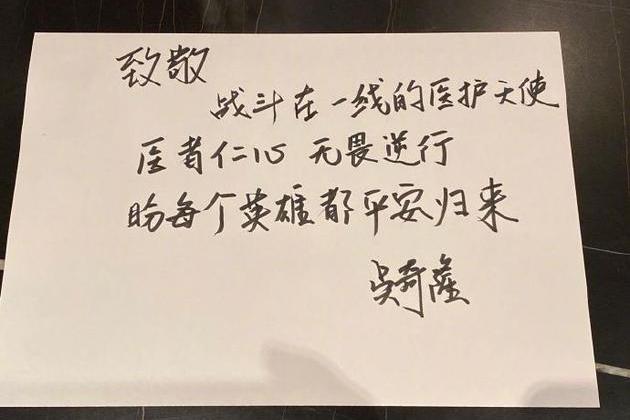 致敬
战斗在一线的医护天使
医者仁心 无畏逆行
盼每个英雄都平安归来
吴奇隆